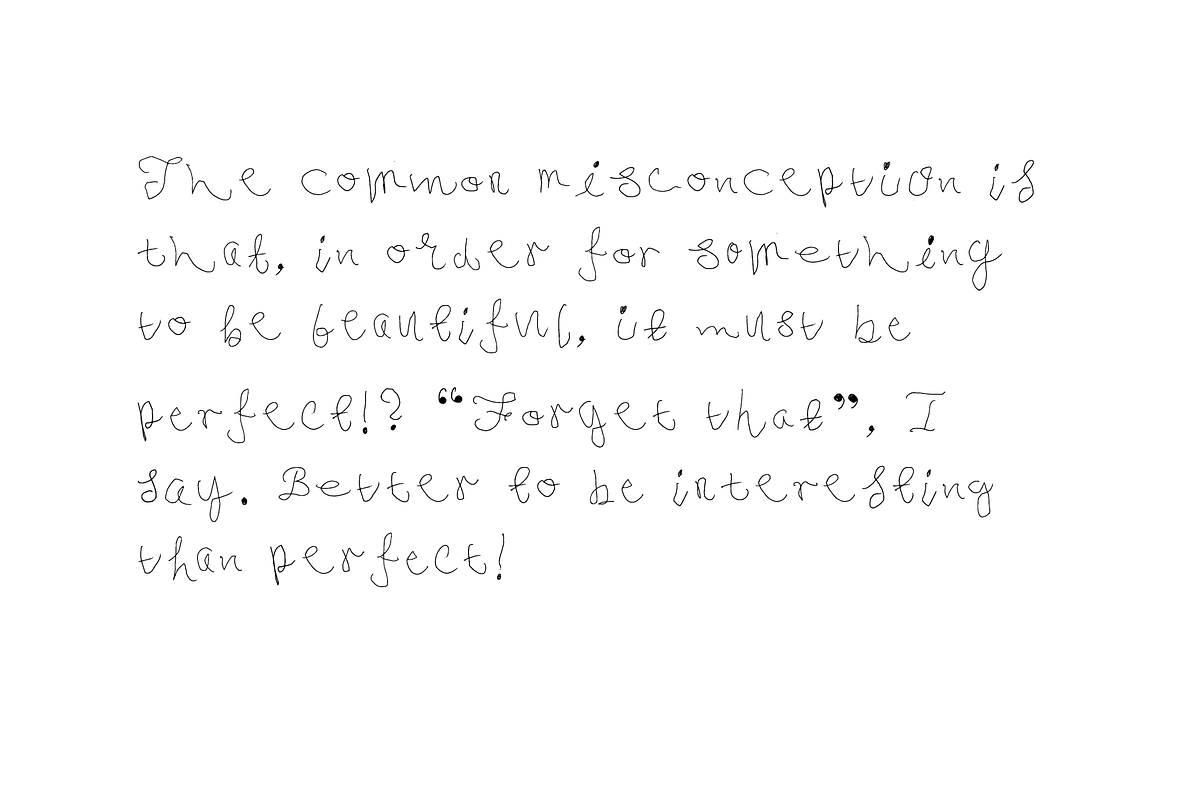 The common misconception is
that, in order for something
to be beautiful, it must be
perfect!? “Forget that”, I
say. Better to be interesting
than perfect!